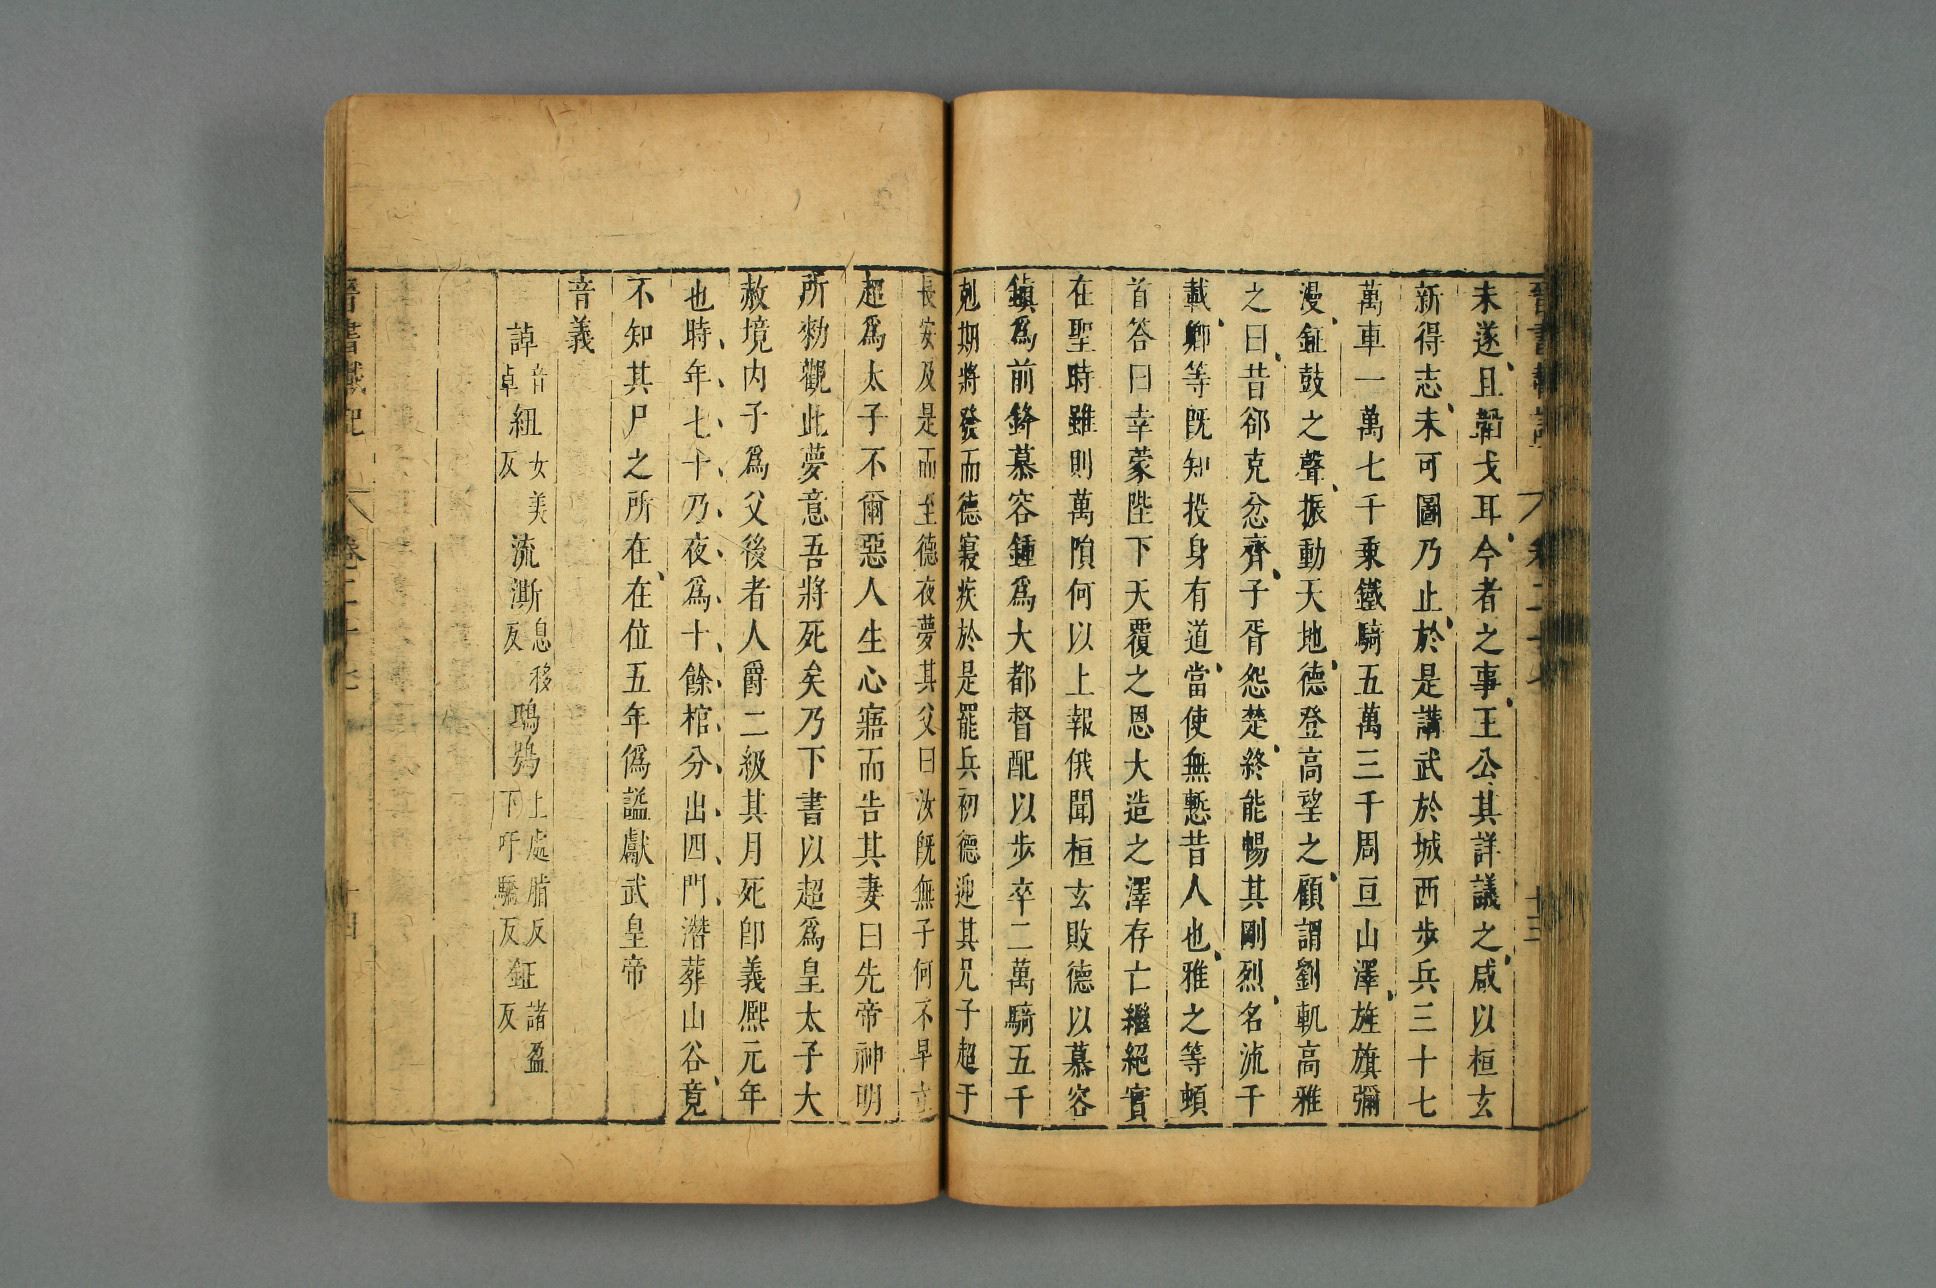 未遂且韜戈耳今者之事王公其詳議之咸以桓玄
新得志未可圖乃止於是講武於城西步兵三十七
萬車一萬七千乗鐵騎五萬三千周亘山澤旌旗彌
漫鉦鼓之聲振動天地德登高望之顧謂劉軌高雅
之曰昔郤克忿齊子胥怨楚終能暢其剛烈名流千
載卿等既知投身有道當使無慙昔人也雅之等頓
首答曰幸蒙陛下天覆之恩大造之澤存亡繼絕實
在聖時雖則萬隕何以上報俄聞桓玄敗德以慕容
鎮爲前鋒慕容鍾爲大都督配以步卒二萬騎五千
剋期將發而德寢疾於是罷兵初德迎其兄子超于
長安及是而至德夜夢其父曰汝既無子何不早立
超爲太子不爾惡人生心寤而告其妻曰先帝神明
所勑觀此夢意吾將死矣乃下書以超爲皇太子大
赦境内子爲父後者人爵二級其月死即義熙元年
也時年七十乃夜爲十餘棺分出四門潛葬山谷竟
不知其尸之所在在位五年僞謚獻武皇帝
音義
諱音卓 紐女美反 流澌息移反 鴟鴞上處脂反下吁驕反 鉦諸盈反
晉書載記 卷二十七 十四